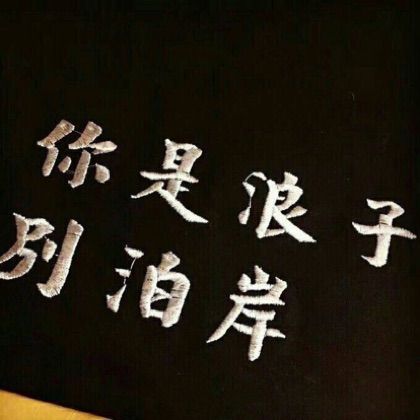 你是浪子
別泊岸